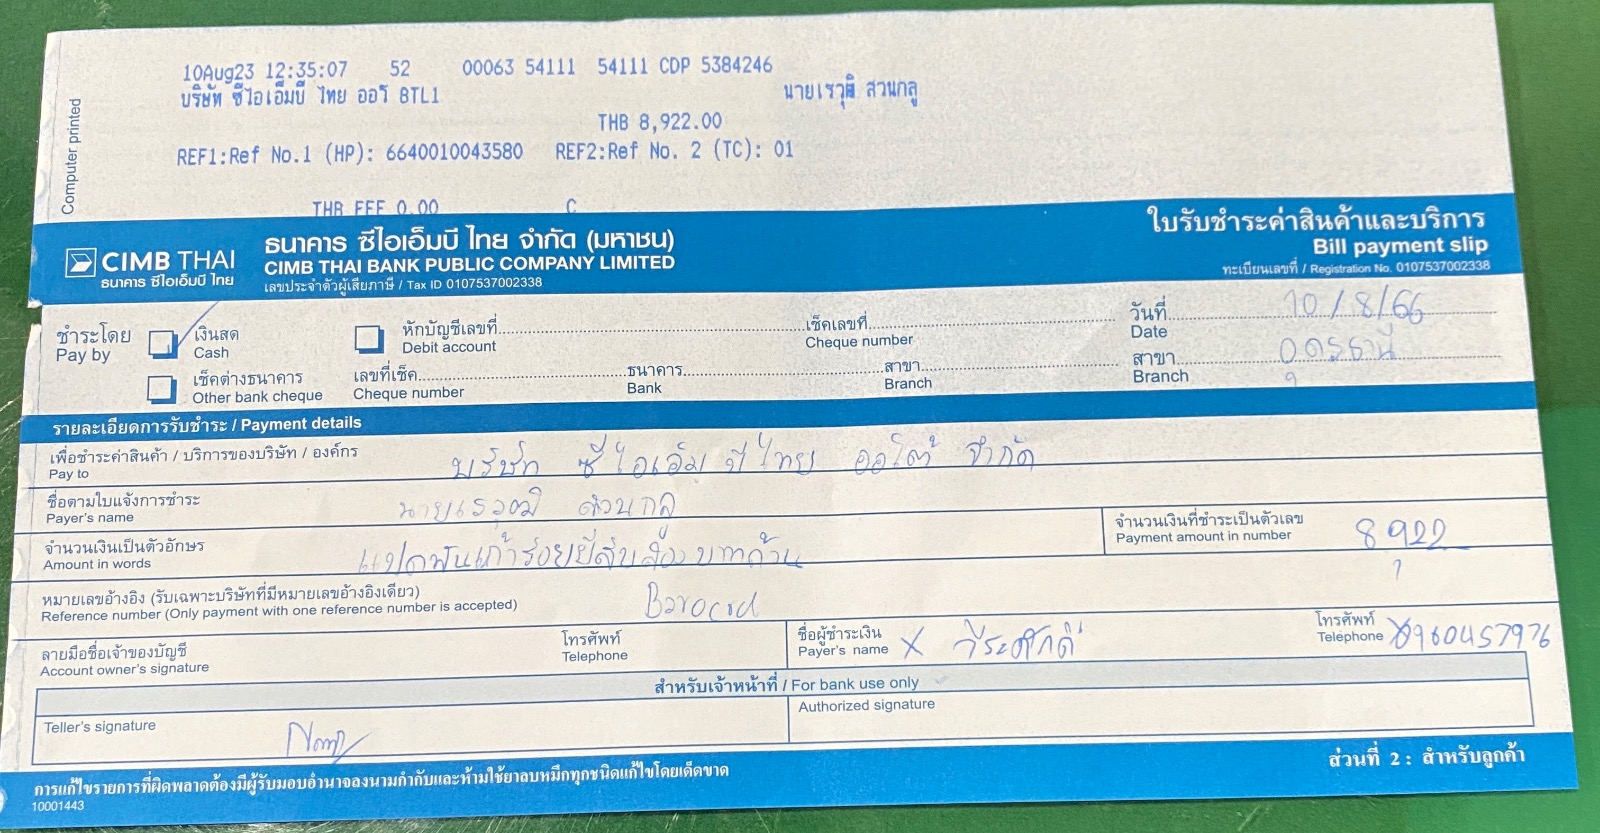 Computer printed
10Aug23 12:35:07 52 00063 54111 54111 CDP 5384246
บริษัท ซีไอเอ็มบี ไทย ออโ BTL1 นายเรวุฒิ สวนกลู
THB 8,922.00
REF1:Ref No.1 (HP): 6640010043580 REF2:Ref No. 2 (TC): 01
THB FEE 0.00 C
CIMB THAI
ธนาคาร ซีไอเอ็มบี ไทย
ธนาคาร ซีไอเอ็มบี ไทย จำกัด (มหาชน)
CIMB THAI BANK PUBLIC COMPANY LIMITED
เลขประจำตัวผู้เสียภาษี / Tax ID 0107537002338
ใบรับชำระค่าสินค้าและบริการ
Bill payment slip
ทะเบียนเลขที่ / Registration No. 0107537002338
ชำระโดย
Pay by
เงินสด
Cash
หักบัญชีเลขที่
Debit account
เช็คเลขที่
Cheque number
วันที่ 10/8/66
Date
เช็คต่างธนาคาร
Other bank cheque
เลขที่เช็ค
Cheque number
ธนาคาร
Bank
สาขา
Branch
สาขา อุดรธานี
Branch
รายละเอียดการรับชำระ / Payment details
เพื่อชำระค่าสินค้า / บริการของบริษัท / องค์กร
Pay to
บริษัท ซีไอเอ็มบีไทย ออโต้ จำกัด
ชื่อตามใบแจ้งการชำระ
Payer's name
นายเรวุฒิ สวนกลู
จำนวนเงินเป็นตัวอักษร
Amount in words
แปดพันเก้าร้อยยี่สิบสองบาทถ้วน
จำนวนเงินที่ชำระเป็นตัวเลข
Payment amount in number
8922
หมายเลขอ้างอิง (รับเฉพาะบริษัทที่มีหมายเลขอ้างอิงเดียว)
Reference number (Only payment with one reference number is accepted)
ลายมือชื่อเจ้าของบัญชี
Account owner's signature
โทรศัพท์
Telephone
ชื่อผู้ชำระเงิน
Payer's name X วีระศักดิ์
โทรศัพท์
Telephone 0960457976
สำหรับเจ้าหน้าที่ / For bank use only
Teller's signature
Authorized signature
การแก้ไขรายการที่ผิดพลาดต้องมีผู้รับมอบอำนาจลงนามกำกับและห้ามใช้ยาลบหมึกทุกชนิดแก้ไขโดยเด็ดขาด
ส่วนที่ 2 : สำหรับลูกค้า
10001443